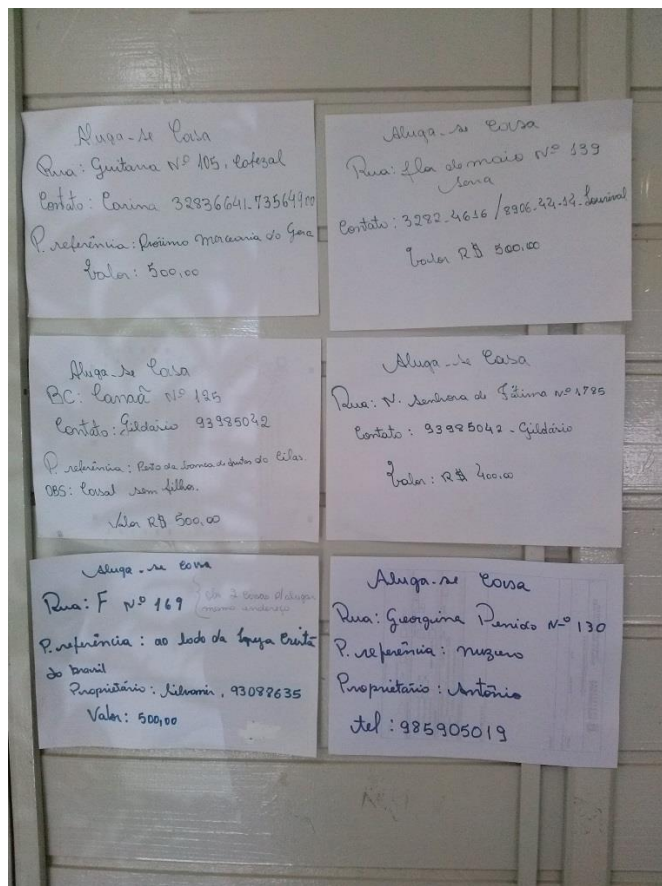 Aluga-se Casa
Rua: Guitarra Nº 105, Cafezal
Contato: Carina 32836641-73564900
P. referência: Próximo mercearia do Gera
Valor: 500,00
Aluga-se Casa
Rua: flor de maio Nº 139
Serra
Contato: 3282-4616 / 8906-44-14-Lourival
Valor R$ 500,00
Aluga-se Casa
BC: Canaã Nº 185
Contato: Gildário 93985042
P. referência: Perto da banca de do Silas.
OBS: Casal sem filhos.
Valor R$ 500,00
Aluga-se Casa
Rua: N. Senhora de Fátima Nº 1785
Contato: 93985042 - Gildário
Valor: R$ 400,00
Aluga-se Casa
Rua: F Nº 169
2 casas p/ alugar
mesmo endereço
P. referência: ao lado da Igreja Cristã
do Brasil
Proprietário: Silvanir, 93088635
Valor: 500,00
Aluga-se Casa
Rua: Georgina Penido Nº 130
P. referência: muzeu
Proprietário: Antônio
tel: 985905019